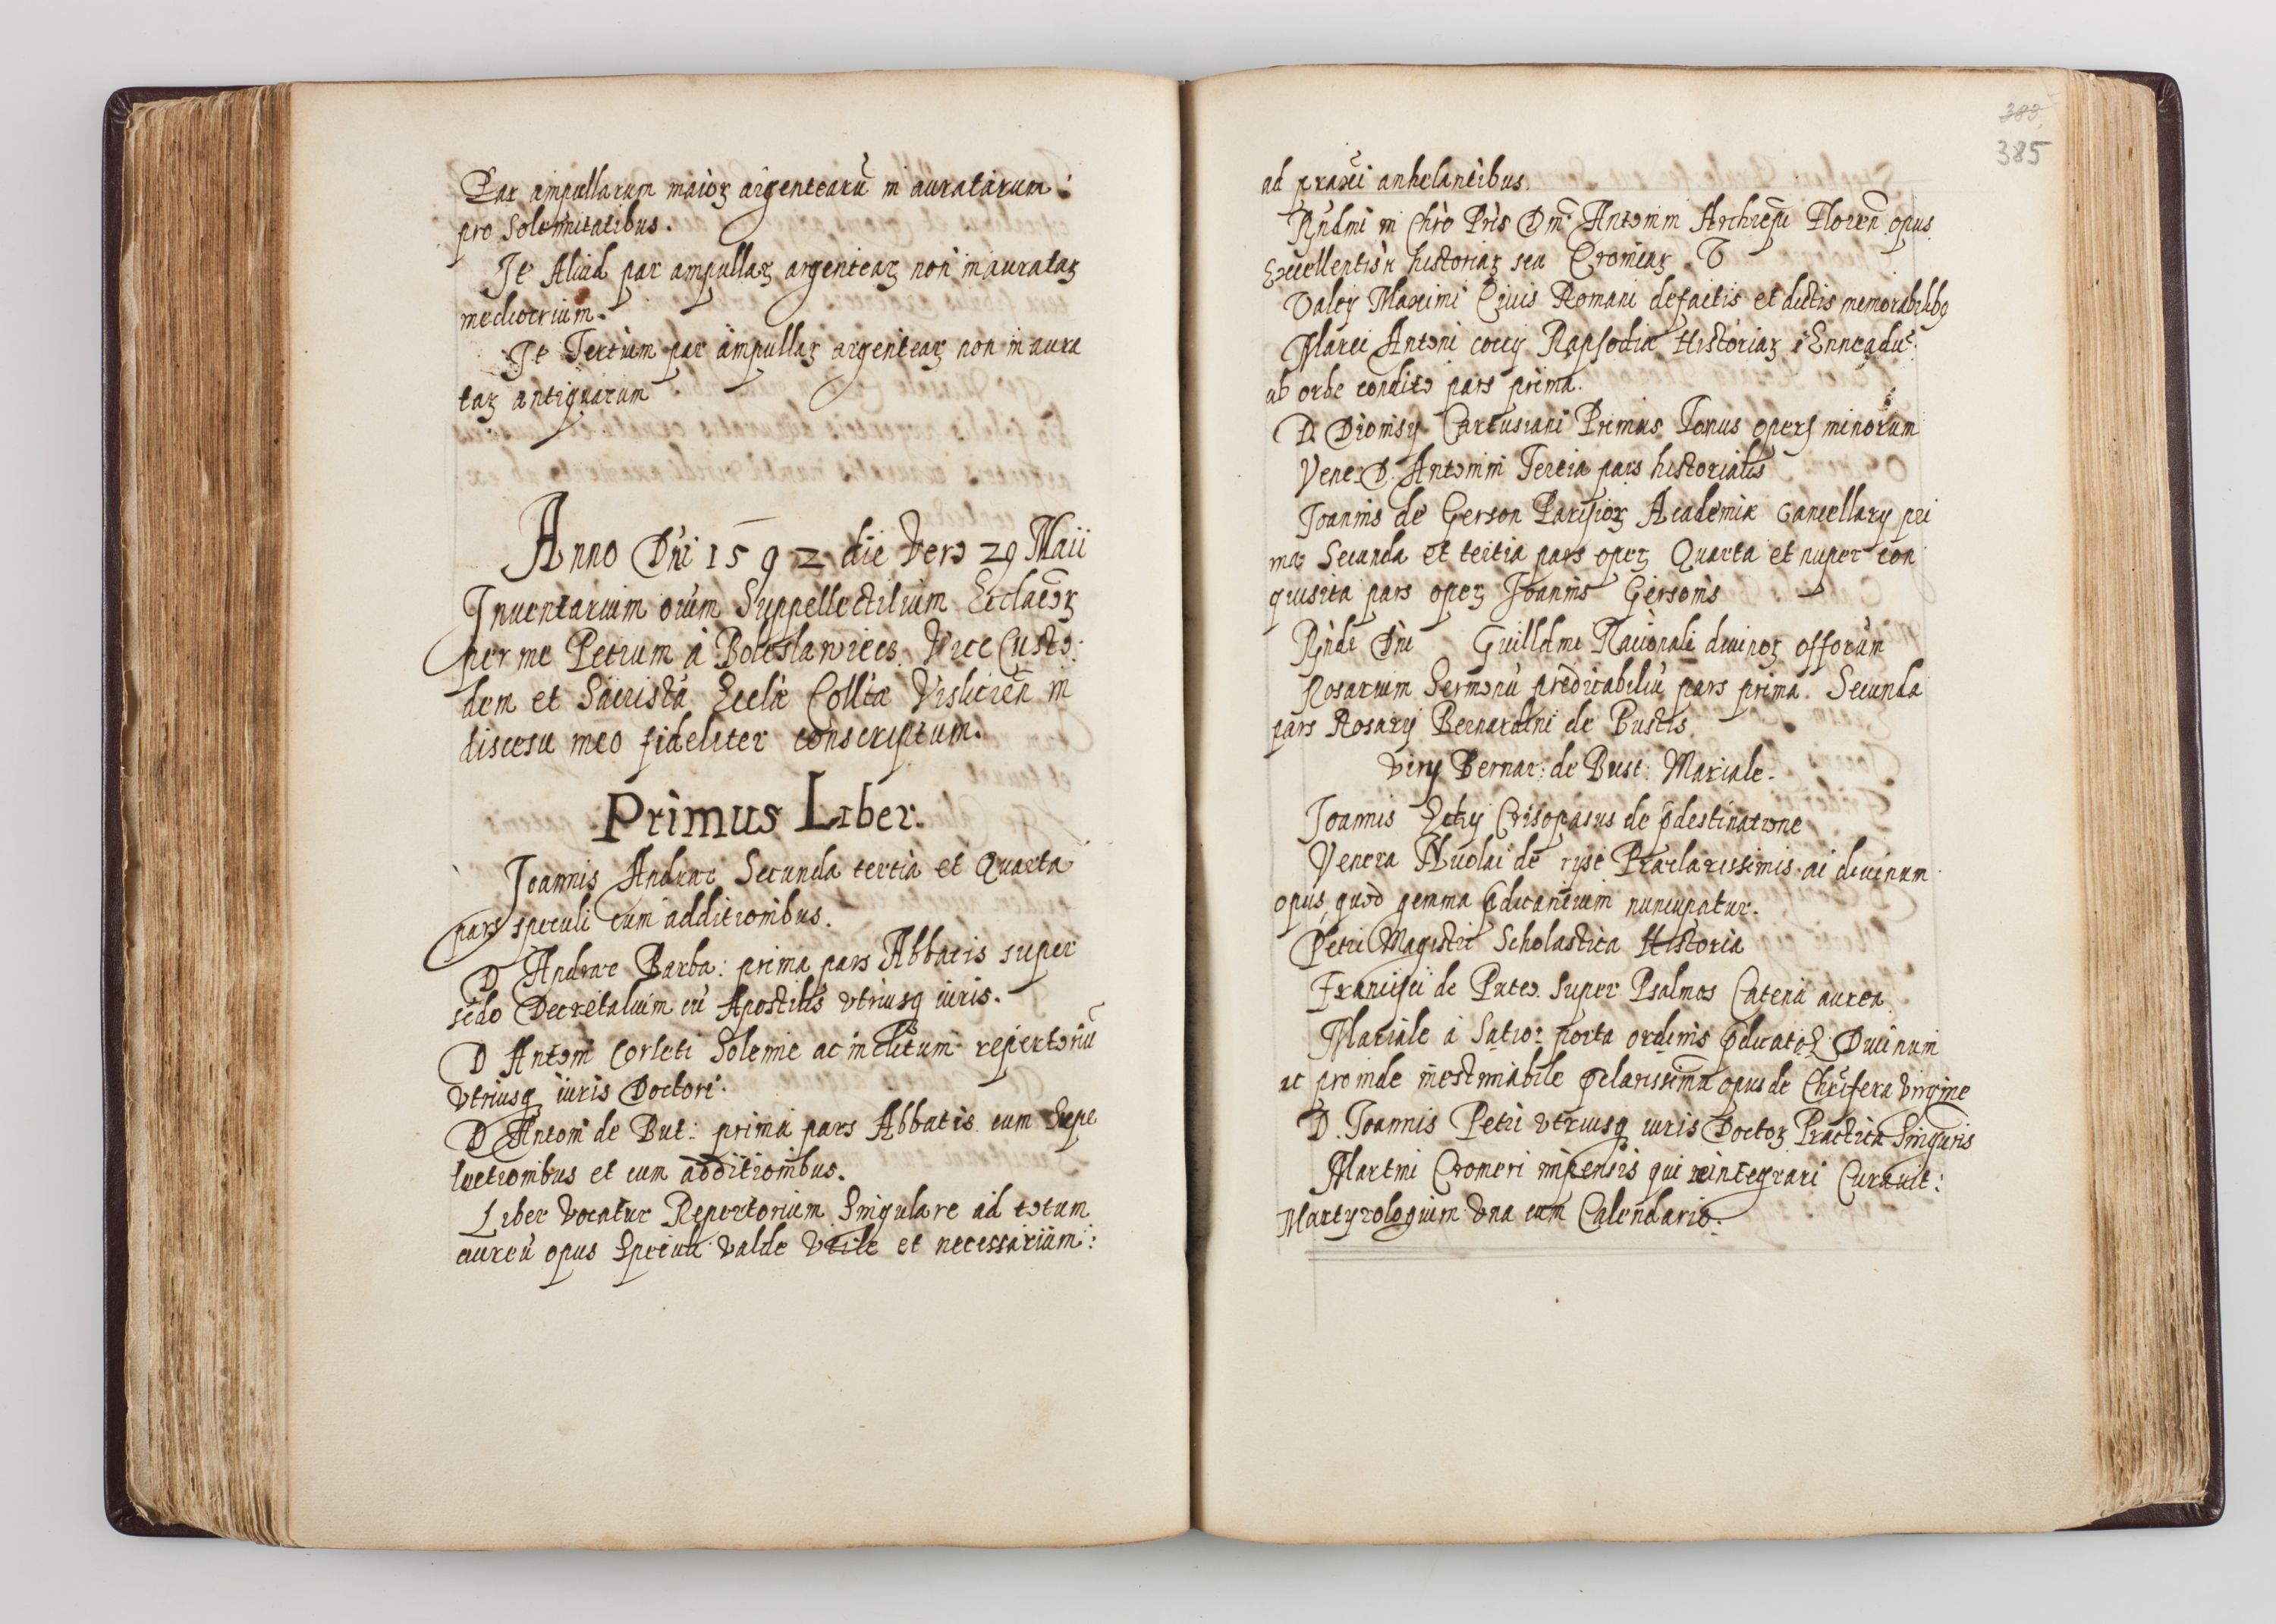 Par ampullarum maioꝝ argentearū in auratarum:
pro Solemnitatibus.
It Aliud par ampullaꝝ argenteaꝝ non in aurataꝝ
mediocrium.
It Tertium par ampullaꝝ argenteaꝝ non in aura
taꝝ antiquarum
Anno Dni 1592 die vero 29 Maii
Inuentarium oium Suppellectilium
per me Petrum à Boleslawiecs. Vice Custo:
dem et Sacristā Eccle Collte Vislicien̄ in
discesu meo fideliter conscriptum.
Primus Liber.
Joannis Andrae Secunda tertia et Quarta
pars speculi cum additionibus.
D Andrae Barba: prima pars Abbatis super
sēdo Decretalium cū Apostilis vtriusq iuris.
D Antoni Corseti Solemne ac inclitum repertoriū
vtriusq iuris Doctori.
D Antoni de But: prima pars Abbatis cum Repe
luctionibus et cum additionibus.
Liber vocatur Repertorium Singulare ad totum
aureū opus Speculi valde vtile et necessarium:
383
385
ad praxī anhelantibus.
Rṇdmi in Chro Pris Dnī Antonini Archiepi Floren̄ opus
Excellentiss historiaꝝ seu Cronicaꝝ
Valery Maximi Ciuis Romani de factis et dictis memorabilibꝫ
Marci Antoni coccy Rapsodiae Historiaꝝ Enneadū
ab orbe condito pars prima.
D. Dionisy Cartusiani Primus Tomus operꝫ minorum
Vene: D: Antonini Tercia pars historialis
Joannis de Gerson Parisioꝝ Academiae Cancellary pri
ma Secunda et tertia pars operꝫ Quarta et nuper con
quisita pars operꝫ Joannis Gersonis
Rṇde Dni Guillelmi Racionale diuinoꝝ offorum
Rosarium Sermonū predicabiliū pars prima. Secunda
pars Rosary Bernardini de Bustis.
Bernar: de Bust: Mariale.
Joannis Crisopasus de p̄destinatione
Venera Nicolai de Praeclarissimis ai diuinum
opus, quod gemma p̄dicantium nuncupatur.
Petri Magistri Scholastica Historia
Francisci de Puteo. Super Psalmos Catena aurea.
Mariale à Satio: porta ordinis p̄dicatoꝝ. Diuinum
ac proinde inestimabile p̄clarissimū opus de Christifera Virgine
D. Joannis Petri vtriusq iuris Doctoꝝ Practica Singuris
Martini Cromeri impensis qui reintegrari Curauit:
Martyrologium vna cum Calendario.